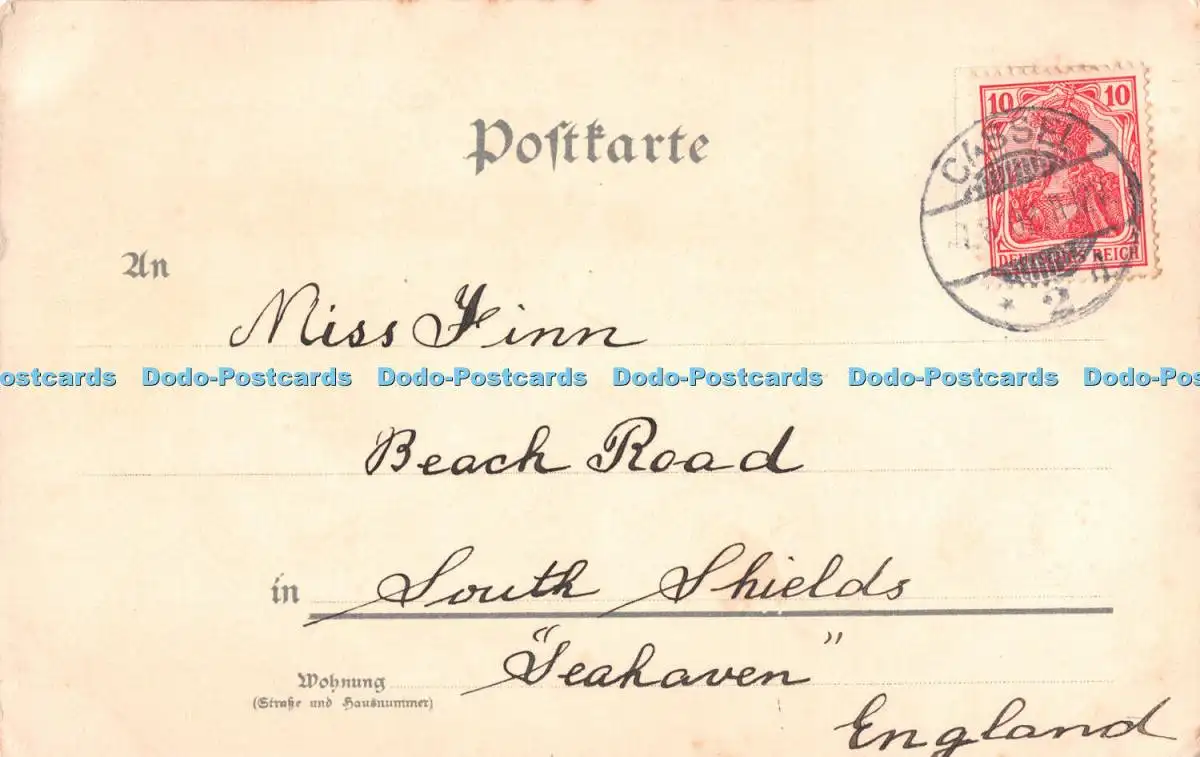 Postkarte
10 10
CASSEL
DEUTSCHES REICH
* 2
An
Miss Finn
Dodo-Postcards Dodo-Postcards Dodo-Postcards Dodo-Postcards
Beach Road
in South Shields
"Seahaven"
Wohnung
(Straße und Hausnummer)
England